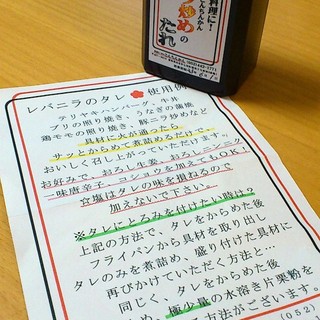 料理に！
炒めの
たれ
レバニラのタレ 使用例
テリヤキハンバーグ、牛丼
ブリの照り焼き、うなぎの蒲焼
鶏モモの照り焼き、豚ニラ炒めなど
具材に火が通ったら
サッとからめて煮詰めるだけで、
おいしく召し上がっていただけますッ。
お好みで、おろし生姜、おろしニンニク
一味唐辛子、コショウを加えてもOK！
☆塩はタレの味を損ねるので
加えないで下さい。
※タレにとろみを付けたい時は？
上記の方法で、タレをからめた後
フライパンから具材を取り出し
タレのみを煮詰め、盛り付けた具材に
再びかけていただく方法と…
同じく、タレをからめた後
極少量の水溶き片栗粉を
方法がございます。
(052)